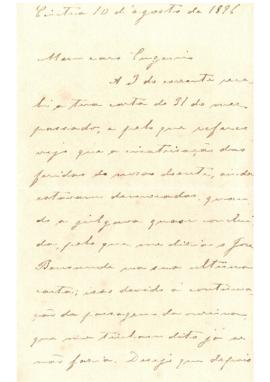 Cintra 10 d'agosto de 1896
Meu caro Eugenio
A 7 do corrente rece-
bi a tua carta de 31 do mez
passado, e pelo que referes
vejo que a cicatrisação das
feridas do nosso doente, ainda
estavam demoradas, quan-
do a julgava quasi conclui-
da, pelo que me dizia o José
na sua ultima
carta; isso devido á continua-
ção da passagem da ourina
que me tinham dito já se
não fazia. Desejo que depois